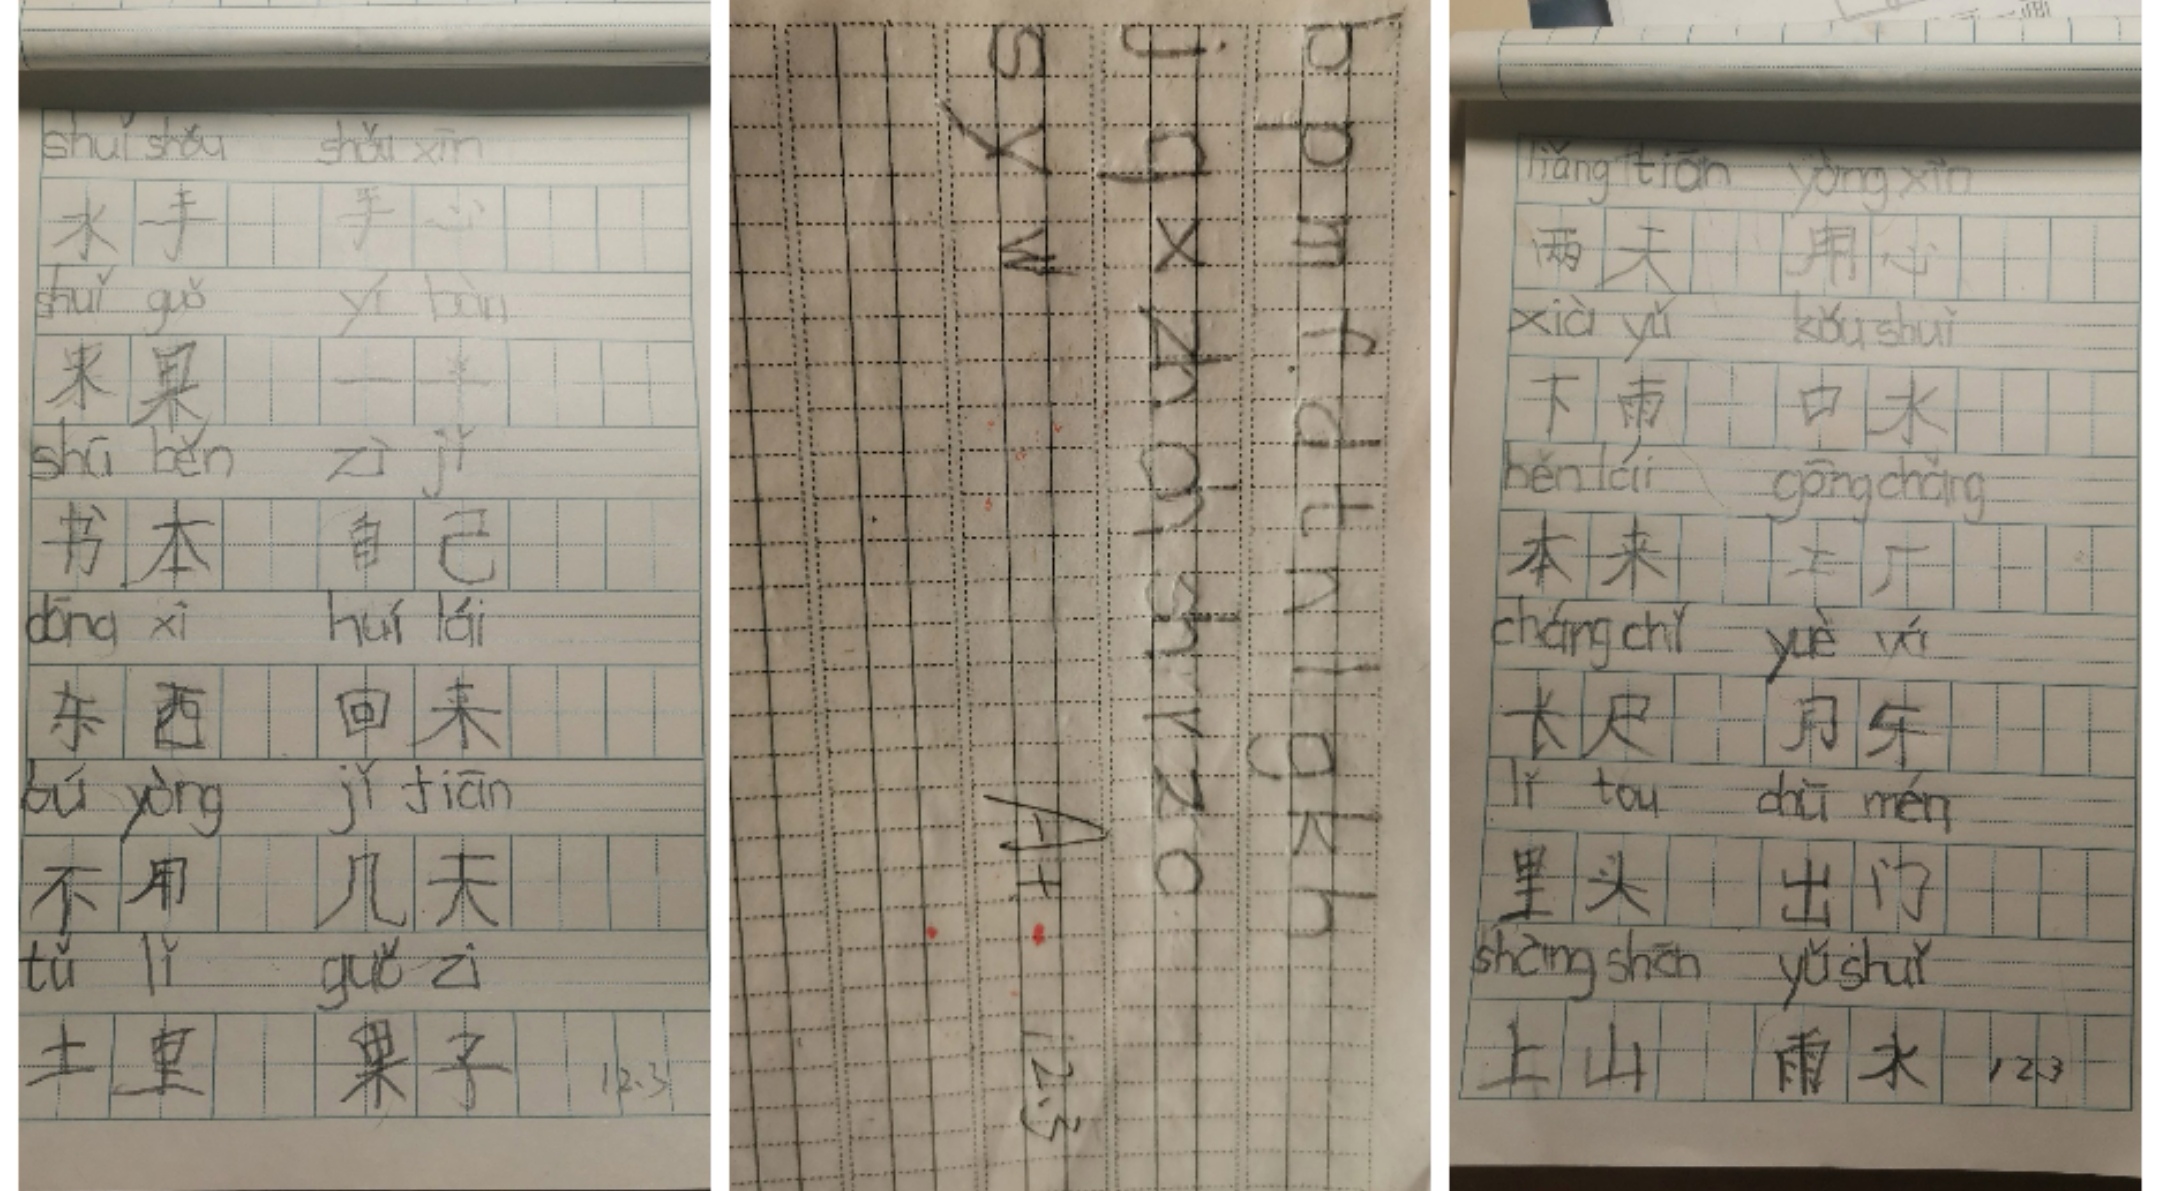 shuǐ shǒu shǒu xīn
水 手 手 心
shuǐ guǒ yí bàn
果 一 半
shū běn zì jǐ
书 本 自 己
dōng xi huí lái
东 西 回 来
bú yòng jǐ tiān
不 用 几 天
tǔ lǐ guǒ zi
土 里 果 子 12.3
b p m f d t n l g k h
j q x zh ch sh r z c
s y w A+ 12.3
liǎng tiān yòng xīn
两 天 用 心
xià yǔ kǒu shuǐ
下 雨 口 水
běn lái gōng chǎng
本 来 工 厂
cháng chǐ yuè yá
长 尺 月 牙
lǐ tou chū mén
里 头 出 门
shàng shān yǔ shuǐ
上 山 雨 水 12.3